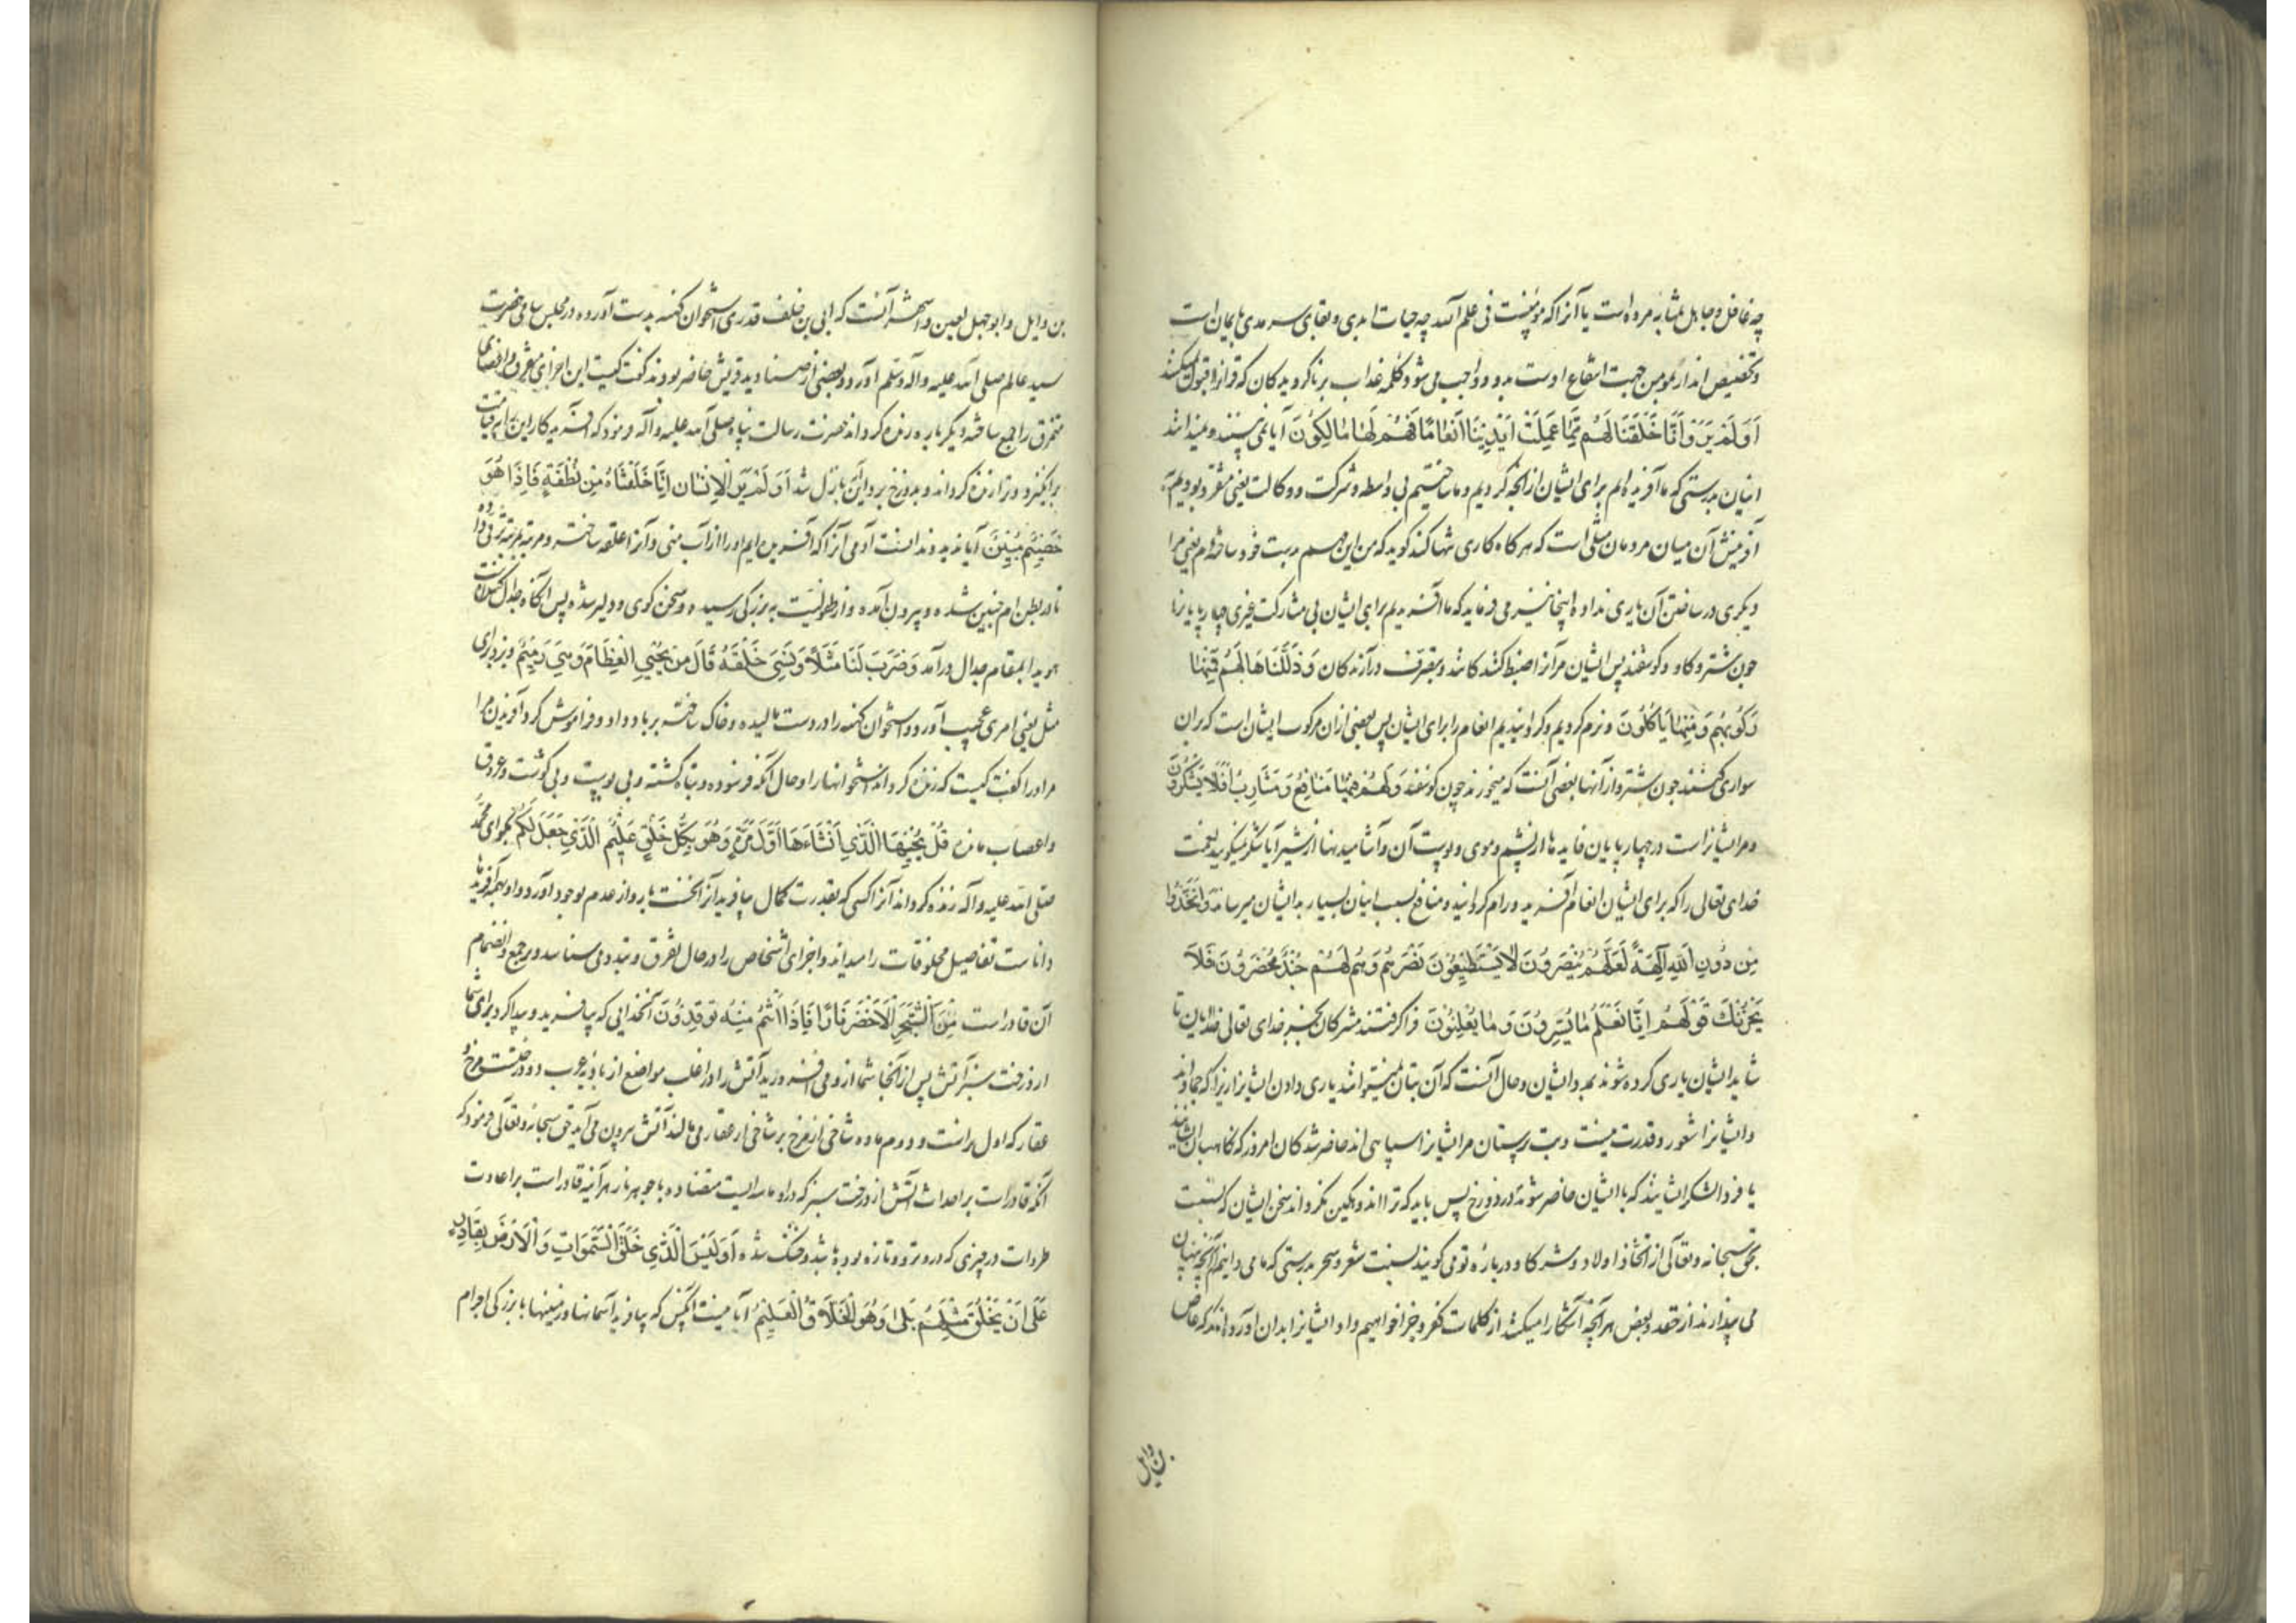 چه غافل و جاهل بمثابه مرده است یا آنرا که مؤمنست فی علم الله چه حیات ابدی و بقای سرمدی بایمان است
و تخصیص انذار بمومن جهت انتفاع اوست بدو و واجب می شود کلمه عذاب بر ناگرویدگان که قرانرا قبول نمیکنند
اَوَلَمْ يَرَوْا اَنَّا خَلَقْنَا لَهُمْ مِمَّا عَمِلَتْ اَيْدِينَا اَنْعَامًا فَهُمْ لَهَا مَالِكُونَ آیا نمی بینند و نمیدانند
اینان بدرستی که ما آفریده ایم برای ایشان از انچه کردیم و ما ساختیم بی واسطه و شرکت و وکالت یعنی متفرد بودیم به
آفرینش آن میان مردمان مثلی است که هرگاه کاری تنها کند گوید که من این مهم بدست خود ساخته ام یعنی مرا
دیگری در ساختن آن یاری نداده اینجا نیز می فرماید که ما آفریدیم برای ایشان بی مشارکت غیری چهارپایانرا
چون شتر و گاو و گوسفند پس ایشان مر آنرا ضبط کنندگانند و بتصرف درآرندگان وَذَلَّلْنَاهَا لَهُمْ فَمِنْهَا
رَكُوبُهُمْ وَمِنْهَا يَأْكُلُونَ و نرم کردیم و گردانیدیم انعام را برای ایشان پس بعضی ازان مرکوب ایشان است که بران
سواری کنند چون شتر و از آنها بعضی آنست که میخورند چون گوسفند وَلَهُمْ فِيهَا مَنَافِعُ وَمَشَارِبُ اَفَلَا يَشْكُرُونَ
و مر ایشانراست در چهارپایان فایده ها از پشم و موی و پوست آن و آشامیدنها از شیر آیا شکر نمیگویند نعمت
خدای تعالی را که برای ایشان انعام آفرید و رام گردانید و منافع بسبب اینان بسیار به ایشان میرساند وَاتَّخَذُوا
مِنْ دُونِ اللَّهِ آلِهَةً لَعَلَّهُمْ يُنْصَرُونَ لَا يَسْتَطِيعُونَ نَصْرَهُمْ وَهُمْ لَهُمْ جُنْدٌ مُحْضَرُونَ فَلَا
يَحْزُنْكَ قَوْلُهُمْ اِنَّا نَعْلَمُ مَا يُسِرُّونَ وَمَا يُعْلِنُونَ فرا گرفتند مشرکان بجز خدای تعالی خدایان تا
شاید ایشان یاری کرده شوند بمدد ایشان و حال آنست که آن بتان نمیتوانند یاری دادن ایشانرا زیرا که جمادند
و ایشانرا شعور و قدرت نیست و بت پرستان مر ایشانرا سپاهی اند حاضر شدگان امروز که نگاهبان ایشانند
یا فردا لشکر ایشانند که با ایشان حاضر شوند در دوزخ پس باید که ترا اندوهگین نگرداند سخن ایشان که نسبت
بحق سبحانه و تعالی از اتخاذ اولاد و شرکا و درباره تو می گویند نسبت شعر و سحر بدرستی که ما می دانیم آنچه پنهان
می پندارند از حقد و بغض هر آنچه آشکارا میکنند از کلمات کفر و جزا خواهیم داد ایشانرا بدان آورده اند که عاص
بن وایل
بن وایل و ابوجهل لعین و اشهر آنست که ابی بن خلف قدری استخوان کهنه بدست آورده در مجلس سامی حضرت
سید عالم صلی الله علیه و آله و سلم آورد و بعضی از صنادید قریش حاضر بودند گفت کیست این اجزای متفرق و اعضای
متمزق را جمع ساخته دیگرباره زنده گرداند حضرت رسالت پناه صلی الله علیه و آله فرمود که آفریدگار این را بقیامت
برانگیزد و ترا زنده گرداند و بدوزخ برد این آیه نازل شد اَوَلَمْ يَرَ الْاِنْسَانُ اَنَّا خَلَقْنَاهُ مِنْ نُطْفَةٍ فَاِذَا هُوَ
خَصِيمٌ مُبِينٌ آیا ندید و ندانست آدمی آنرا که آفریده ایم او را از آب منی و آنرا علقه ساخته و مرتبه مرتبه ترقی داده
تا در بطن ام جنین شده و بیرون آمده و از طفولیت به بزرگی رسیده و سخن گوی و دلیر شده پس آنگاه جدال کننده است
هویدا بمقام جدال درآمد وَضَرَبَ لَنَا مَثَلًا وَنَسِيَ خَلْقَهُ قَالَ مَنْ يُحْيِي الْعِظَامَ وَهِيَ رَمِيمٌ و بزد برای
مثل یعنی امری عجیب آورد و استخوان کهنه را در دست مالیده و خاک ساخته برباد داد و فراموش کرد آفریدن مرا
مر او را گفت کیست که زنده گرداند استخوانها را و حال آنکه فرسوده و تباه گشته و بی پوست و بی گوشت و عروق
و اعصاب مانده قُلْ يُحْيِيهَا الَّذِي اَنْشَاَهَا اَوَّلَ مَرَّةٍ وَهُوَ بِكُلِّ خَلْقٍ عَلِيمٌ الَّذِي جَعَلَ لَكُمْ بگو ای محمد
صلی الله علیه و آله زنده گرداند آنرا کسی که بقدرت کمال بیافرید آنرا نخست بار و از عدم بوجود آورد و او بهمه آفریدها
داناست تفاصیل مخلوقات را میداند و اجزای اشخاص را در حال تفرق و تبدد می شناسد و بر جمع و انضمام
آن قادر است مِنَ الشَّجَرِ الْاَخْضَرِ نَارًا فَاِذَا اَنْتُمْ مِنْهُ تُوقِدُونَ آنخدایی که بیافرید و پیدا کرد برای شما
از درخت سبز آتش پس از آنجا شما ازو می افروزید آتش را در اغلب مواضع از بادیه عرب دو درختست مرخ و
عقار که اول نر است و دوم ماده شاخی از مرخ بر شاخی از عقار می مالند آتش بیرون می آید حق سبحانه و تعالی فرمود که
آنکه قادر است بر احداث آتش از درخت سبز که در او مائیست متضاده با جوهر نار هرآینه قادر است بر اعادت
طراوت در چیزی که درو تر و تازه بوده باشد و خشک شده اَوَلَيْسَ الَّذِي خَلَقَ السَّمَوَاتِ وَالْاَرْضَ بِقَادِرٍ
عَلَى اَنْ يَخْلُقَ مِثْلَهُمْ بَلَى وَهُوَ الْخَلَّاقُ الْعَلِيمُ آیا نیست آنکس که بیافرید آسمانها و زمینها با بزرگی اجرام